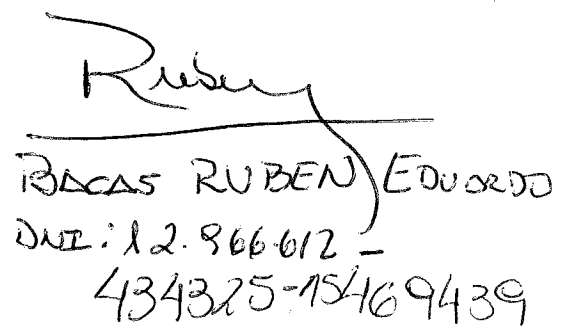 Ruben
BACAS RUBEN EDUARDO
DNI: 12.966.612 -
434325-15469439